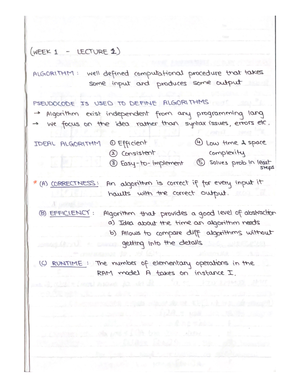 (WEEK 1 - LECTURE 2)
ALGORITHM : well defined computational procedure that takes
some input and produces some output
PSEUDOCODE IS USED TO DEFINE ALGORITHMS
→ Algorithm exist independent from any programming lang
→ we focus on the idea rather than syntax issues, errors etc.
IDEAL ALGORITHM ① Efficient ④ Low time & space
② Consistent complexity
③ Easy-to-implement ⑤ Solves prob in least
steps
* (A) CORRECTNESS : An algorithm is correct if for every input it
haults with the correct output.
(B) EFFICIENCY : Algorithm that provides a good level of abstraction
a) Idea about the time an algorithm needs
b) Allows to compare diff algorithms without
getting into the details
(C) RUNTIME : The number of elementary operations in the
RAM model A takes on instance I.